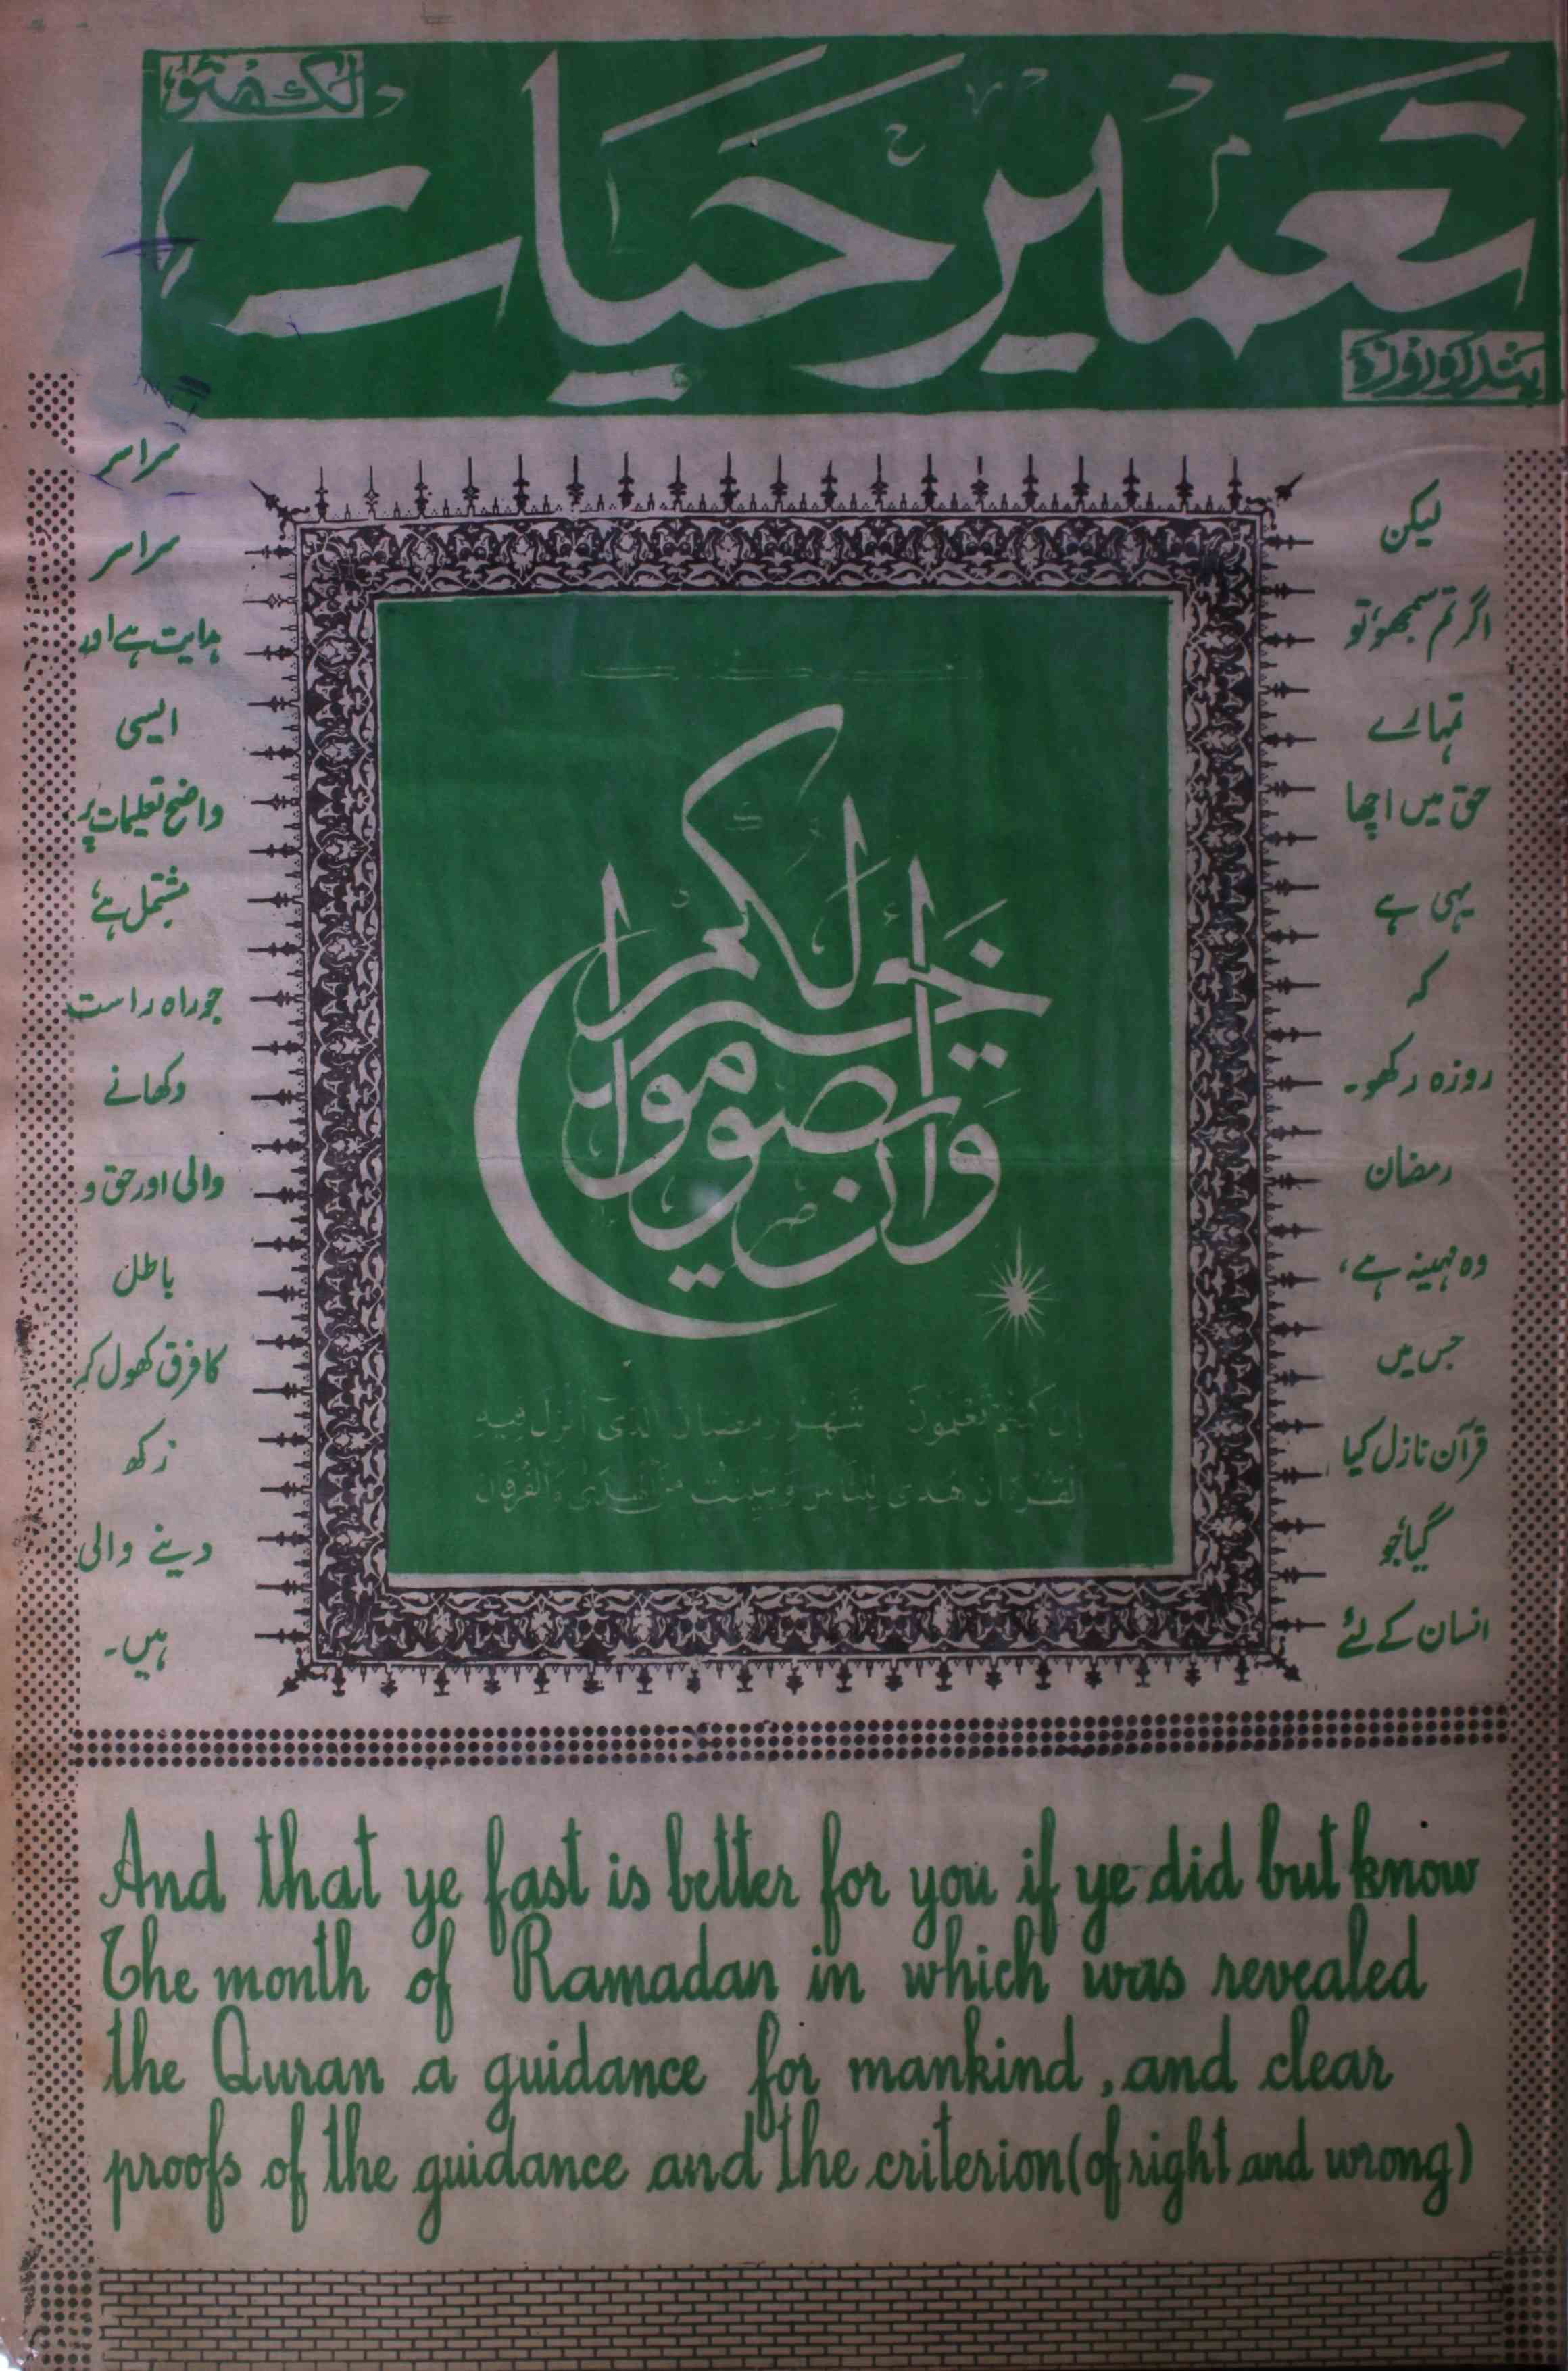 لکھنؤ
تعمیر حیات
پندرہ روزہ
لیکن
اگر تم سمجھو، تو
تمہارے
حق میں اچھا
یہی ہے
کہ
روزہ رکھو۔
رمضان
وہ مہینہ ہے،
جس میں
قرآن نازل کیا
گیا، جو
انسان کے لئے
سراسر
سراسر
ہدایت ہے اور
ایسی
واضح تعلیمات پر
مشتمل ہے،
جو راہ راست
دکھانے
والی اور حق و
باطل
کا فرق کھول کر
رکھ
دینے والی
ہیں۔
وَأَن تَصُومُوا خَيْرٌ لَّكُمْ
إِن كُنتُمْ تَعْلَمُونَ شَهْرُ رَمَضَانَ الَّذِي أُنزِلَ فِيهِ
الْقُرْءَانُ هُدًى لِّلنَّاسِ وَبَيِّنَٰتٍ مِّنَ الْهُدَىٰ وَالْفُرْقَانِ
And that ye fast is better for you if ye did but know
The month of Ramadan in which was revealed
the Quran a guidance for mankind, and clear
proofs of the guidance and the criterion (of right and wrong)